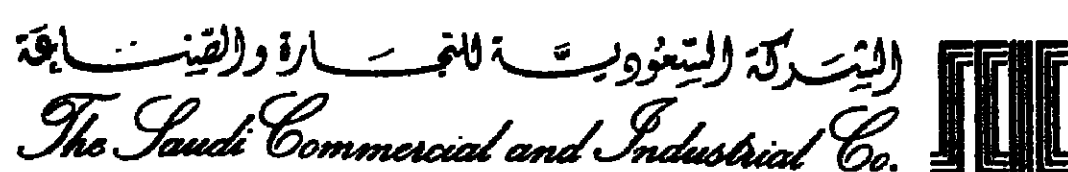 الشركة السعودية للتجارة والصناعة
The Saudi Commercial and Industrial Co.